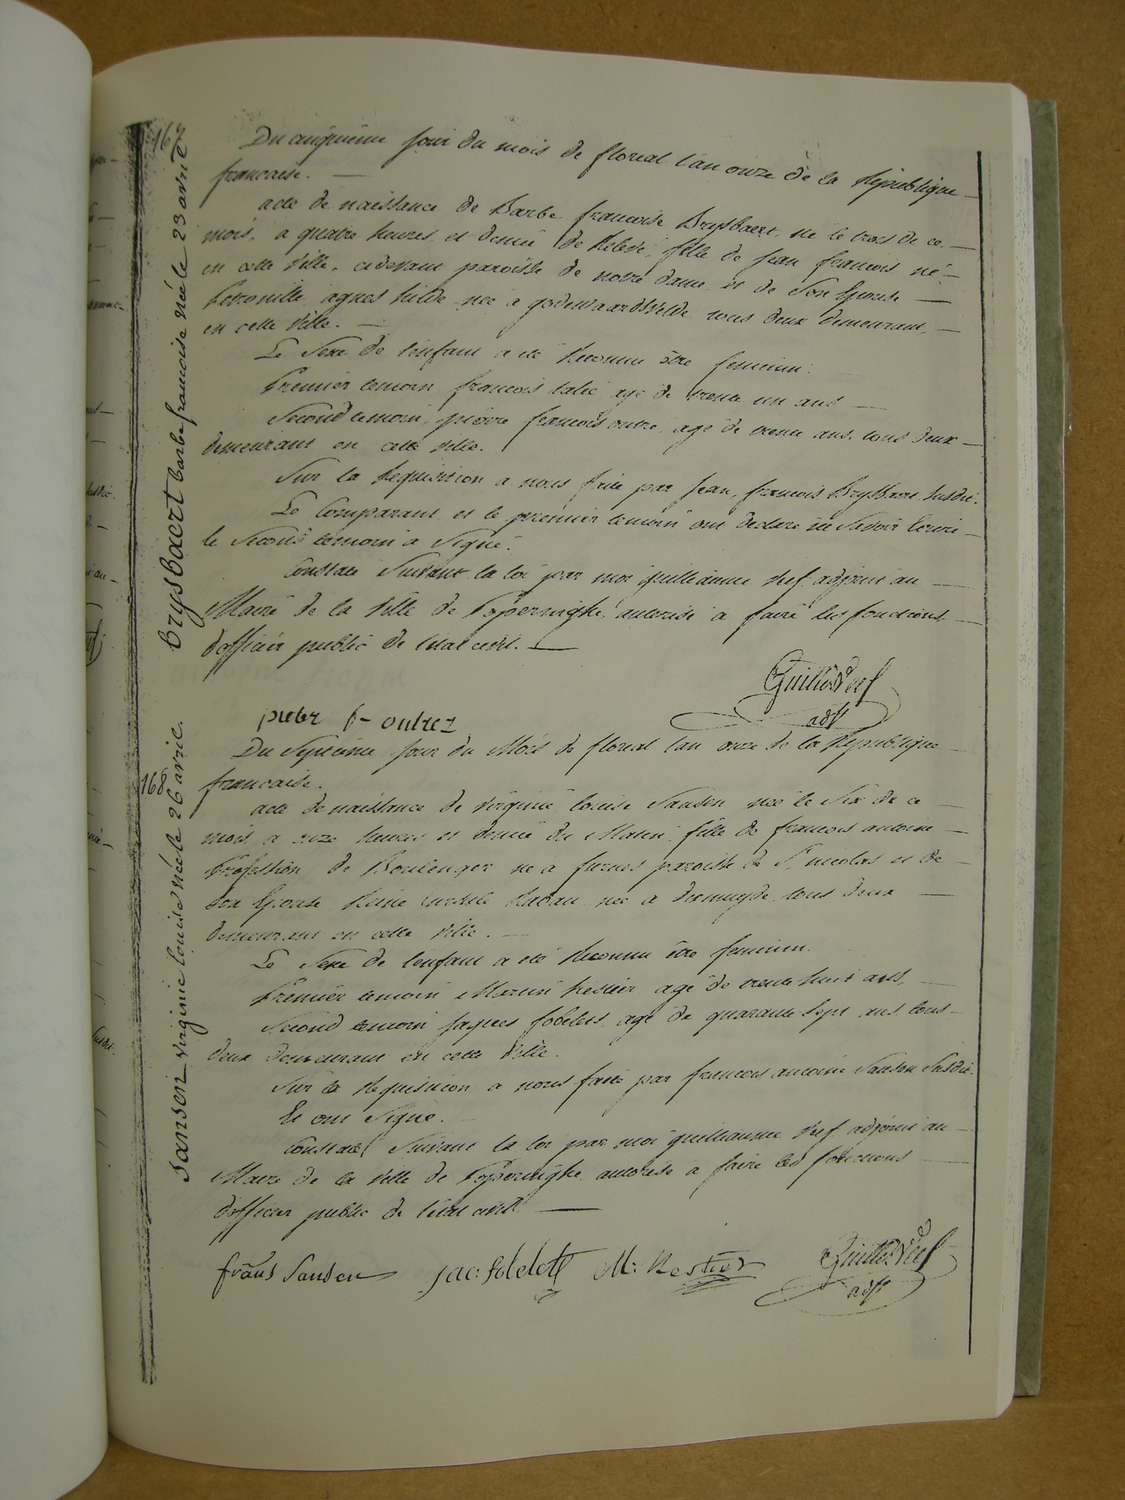 167
Brysbaert barbe francoise Née le 23 avril
Du cinquieme jour du mois de floreal l'an onze de la Republique
francaise.
acte de naissance de Barbe francoise Brysbaert, né le trois de ce
mois, a quatre heures et demie de relevé, fille de jean francois né
en cette ville, cidevant paroisse de notre dame et de son Epouse
Petronille agnes hilde née a godewaardsvelde tous deux demeurant
en cette ville.
Le Sexe de l'enfant a été Reconnu être feminin.
Premier temoin francois agé de trente un ans
Second temoin, pierre francois outre, agé de trente ans, tous deux
demeurant en cette ville.
Sur la Requisition a nous faite par jean francois Brysbaert susdit.
Le Comparant et le premier temoin ont declaré ne Savoir Ecrire
le Second temoin a Signé.
Constaté Suivant la loi par moi guilliaume Vref adjoint au
Maire de la Ville de Poperinghe autorisé a faire les fonctions
d'officier public de l'etat civil.
adjt
pieter f- outrez
168
Sansen virginie louise Née le 26 avril.
Du Septieme jour du Mois de floreal l'an onze de la Republique
francaise.
acte de naissance de virginie louise Sansen née le Six de ce
mois a onze heures et demie du Matin, fille de francois antoine
Profession de Boulenger né a furnes paroisse de St nicolas et de
son Epouse Reine née a dixmuyde tous deux
demeurant en cette ville.
Le Sexe de l'enfant a été Reconnu être feminin.
Premier temoin Martin Restier agé de trente huit ans,
Second temoin jaques fobelets, agé de quarante Sept ans tous
deux demeurant en cette Ville.
Sur la Requisition a nous faite par francois antoine Sansen Susdit.
Et ont Signé.
Constaté Suivant la loi par moi guilliaume Vref adjoint au
Maire de la Ville de Poperinghe autorisé a faire les fonctions
d'officier public de l'etat civil.
frans Sansen jac: fobelets M: Restier
adjt